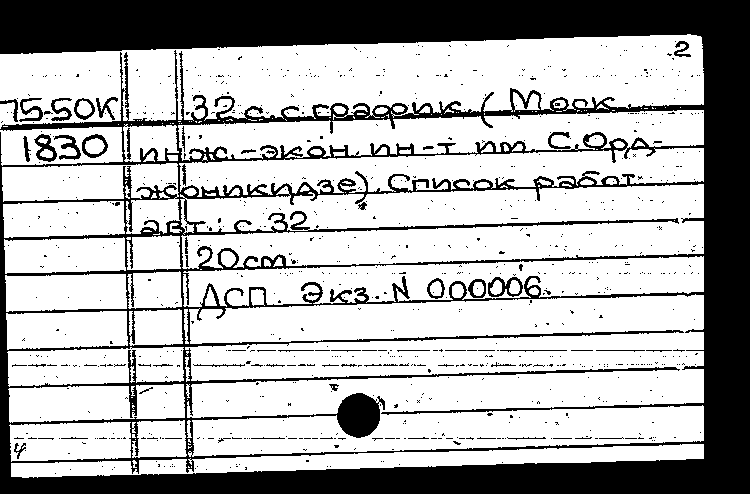 2
75-50К 32 с. с график. (Моск.
1830 инж.-экон. ин-т им. С.Орд-
жоникидзе). Список работ
авт.: с. 32.
20 cm.
ДСП. Экз. N 000006.
4